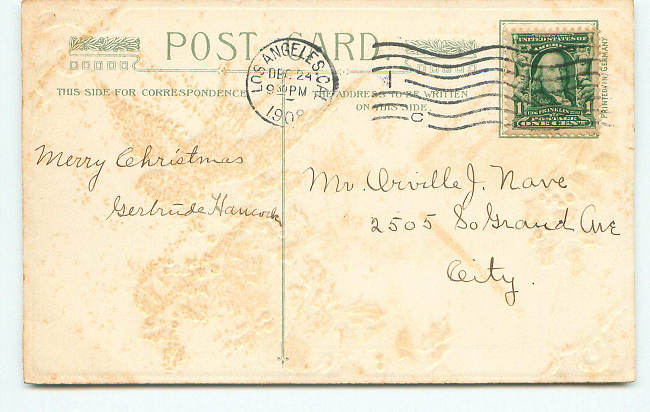 POST CARD
THIS SIDE FOR CORRESPONDENCE
THE ADDRESS TO BE WRITTEN
ON THIS SIDE.
LOS ANGELES, CAL.
DEC. 24
9 30 PM
1908
1
C
UNITED STATES OF
AMERICA
1 FRANKLIN 1
POSTAGE
ONE CENT
PRINTED IN GERMANY
Merry Christmas
Gertrude Hancock
Mr. Orville J. Nave
2505 So Grand Ave
City.